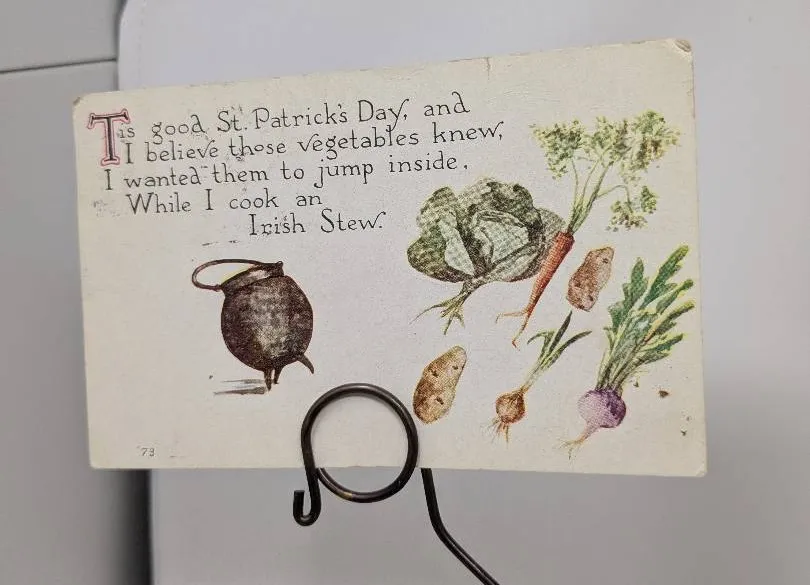 Tis good St. Patrick's Day, and
I believe those vegetables knew,
I wanted them to jump inside,
While I cook an
Irish Stew.
73